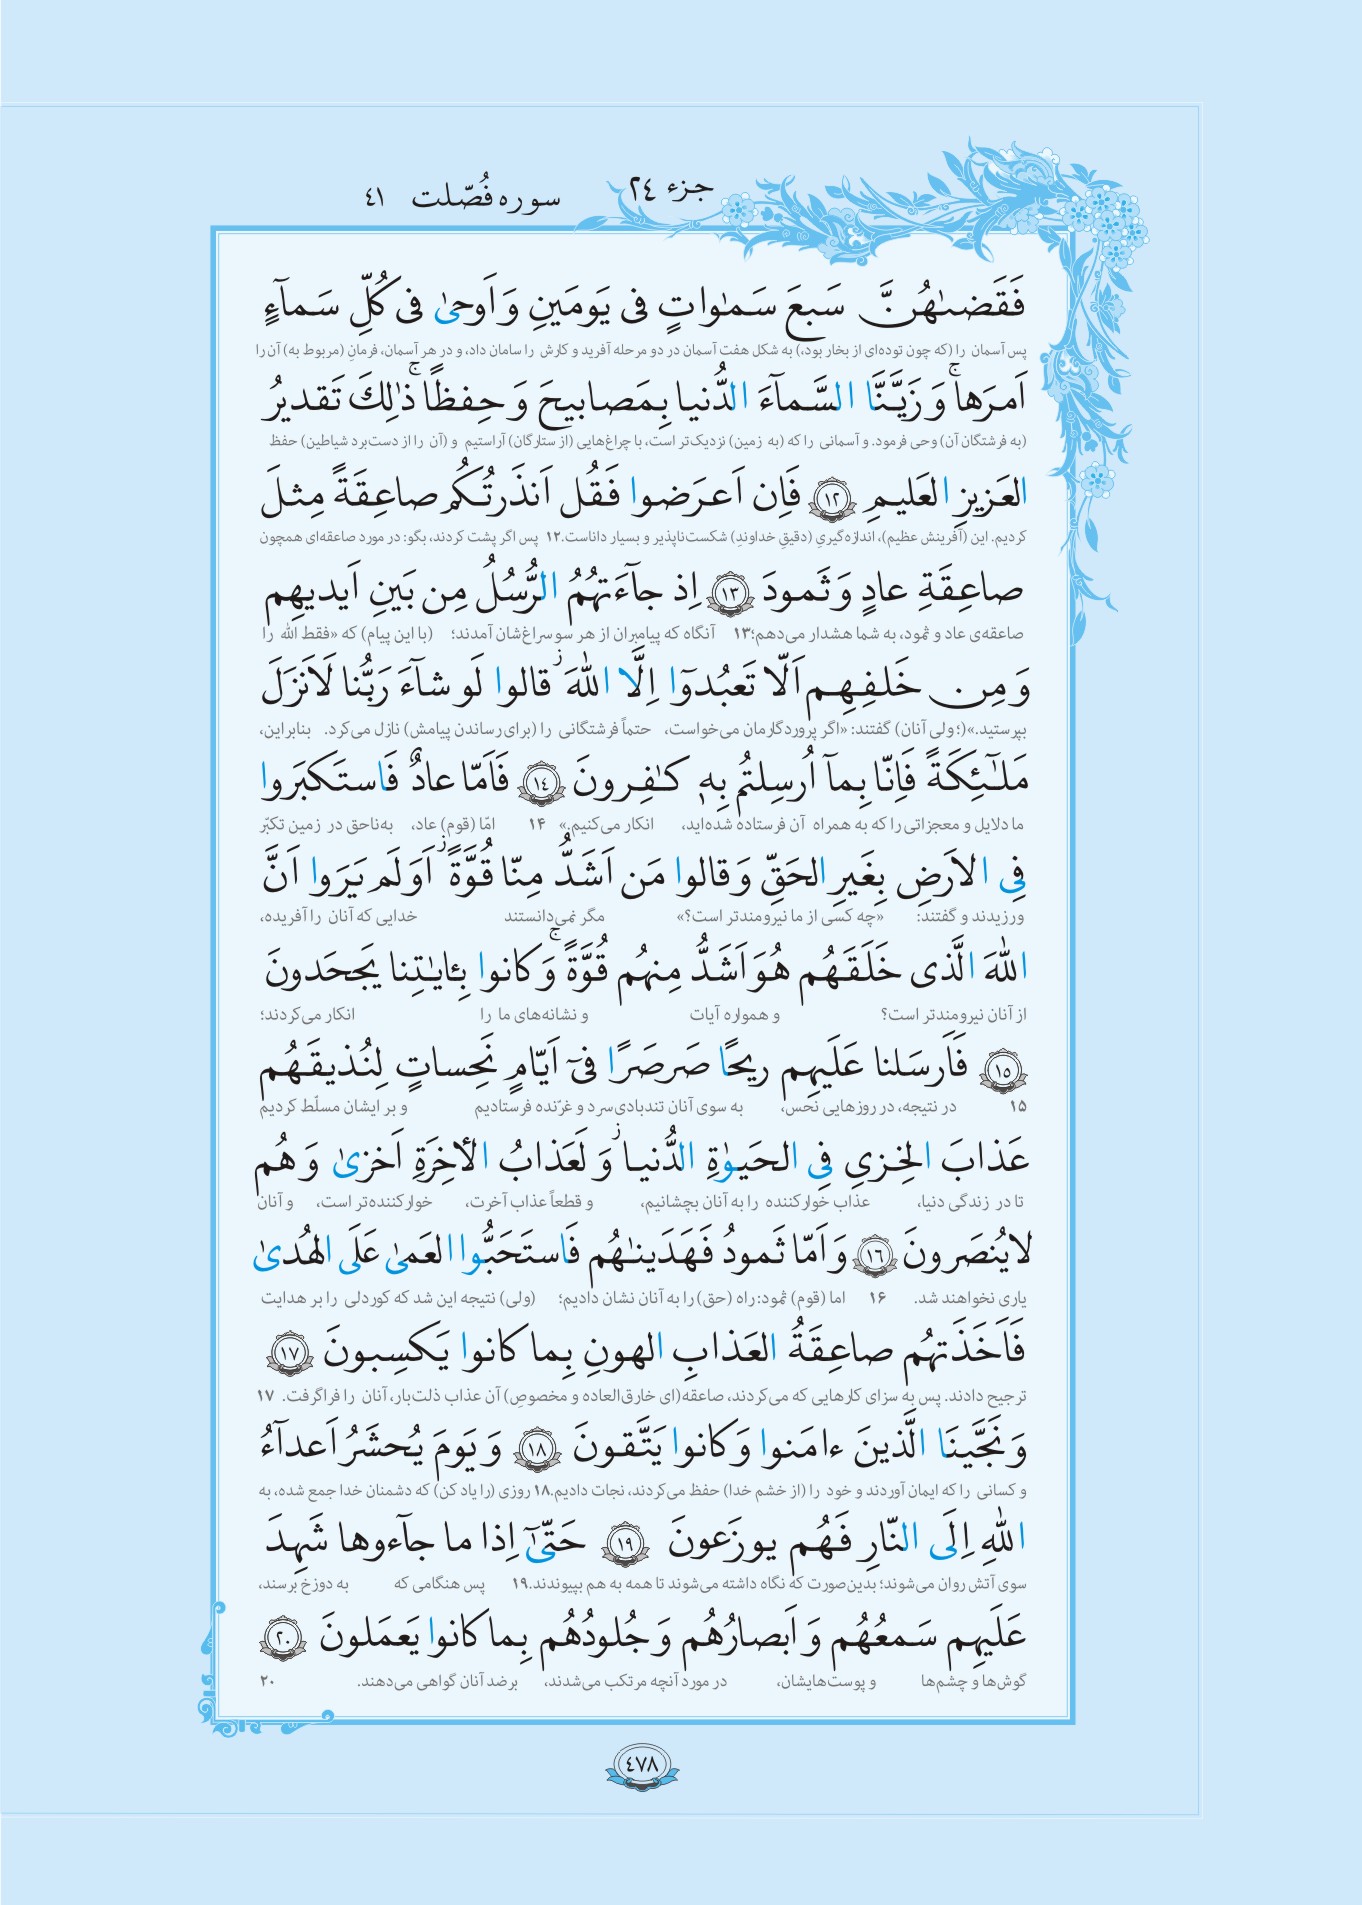 جزء ٢٤
سوره فُصّلت ٤١
فَقَضىٰهُنَّ سَبعَ سَمٰواتٍ فی یَومَینِ وَ اَوحیٰ فی کُلِّ سَمآءٍ
پس آسمان را (که چون توده‌ای از بخار بود،) به شکل هفت آسمان در دو مرحله آفرید و کارش را سامان داد، و در هر آسمان، فرمانِ (مربوط به) آن را
اَمرَها ۚ وَ زَیَّنَّا السَّمآءَ الدُّنیا بِمَصابیحَ وَ حِفظًا ۚ ذٰلِکَ تَقدیرُ
(به فرشتگان آن) وحی فرمود. و آسمانی را که (به زمین) نزدیک‌تر است، با چراغ‌هایی (از ستارگان) آراستیم و (آن را از دست‌برد شیاطین) حفظ
العَزیزِ العَلیمِ ١٢ فَاِن اَعرَضوا فَقُل اَنذَرتُکُم صاعِقَةً مِثلَ
کردیم. این (آفرینش عظیم)، اندازه‌گیریِ (دقیقِ خداوندِ) شکست‌ناپذیر و بسیار داناست.۱۲ پس اگر پشت کردند، بگو: در مورد صاعقه‌ای همچون
صاعِقَةِ عادٍ وَ ثَمودَ ١٣ اِذ جآءَتهُمُ الرُّسُلُ مِن بَینِ اَیدیهِم
صاعقه‌ی عاد و ثمود، به شما هشدار می‌دهم؛۱۳ آنگاه که پیامبران از هر سو سراغ‌شان آمدند؛ (با این پیام) که «فقط الله را
وَ مِن خَلفِهِم اَلّا تَعبُدوٓا اِلَّا اللهَ ۖ قالوا لَو شآءَ رَبُّنا لَاَنزَلَ
بپرستید.»(؛ ولی آنان) گفتند: «اگر پروردگارمان می‌خواست، حتماً فرشتگانی را (برای رساندن پیامش) نازل می‌کرد. بنابراین،
مَلٰٓئِکَةً فَاِنّا بِمآ اُرسِلتُم بِهٖ کٰفِرونَ ١٤ فَاَمّا عادٌ فَاستَکبَروا
ما دلایل و معجزاتی را که به همراه آن فرستاده شده‌اید، انکار می‌کنیم.» ۱۴ امّا (قوم) عاد، به‌ناحق در زمین تکبّر
فِی الاَرضِ بِغَیرِ الحَقِّ وَ قالوا مَن اَشَدُّ مِنّا قُوَّةً ۖ اَوَلَم یَرَوا اَنَّ
ورزیدند و گفتند: «چه کسی از ما نیرومندتر است؟» مگر نمی‌دانستند خدایی که آنان را آفریده،
اللهَ الَّذی خَلَقَهُم هُوَ اَشَدُّ مِنهُم قُوَّةً ۚ وَ کانوا بِـٔایٰتِنا یَجحَدونَ
از آنان نیرومندتر است؟ و همواره آیات و نشانه‌های ما را انکار می‌کردند؛
١٥ فَاَرسَلنا عَلَیهِم ریحًا صَرصَرًا فیٓ اَیّامٍ نَحِساتٍ لِنُذیقَهُم
۱۵ در نتیجه، در روزهایی نحس، به سوی آنان تندبادی سرد و غرّنده فرستادیم و بر ایشان مسلّط کردیم
عَذابَ الخِزیِ فِی الحَیوٰةِ الدُّنیا ۖ وَ لَعَذابُ الأخِرَةِ اَخزیٰ وَ هُم
تا در زندگی دنیا، عذاب خوارکننده را به آنان بچشانیم، و قطعاً عذاب آخرت، خوارکننده‌تر است، و آنان
لایُنصَرونَ ١٦ وَ اَمّا ثَمودُ فَهَدَینٰهُم فَاستَحَبُّوا العَمیٰ عَلَی الهُدیٰ
یاری نخواهند شد. ۱۶ اما (قوم) ثمود: راه (حق) را به آنان نشان دادیم؛ (ولی) نتیجه این شد که کوردلی را بر هدایت
فَاَخَذَتهُم صاعِقَةُ العَذابِ الهونِ بِما کانوا یَکسِبونَ ١٧
ترجیح دادند. پس به سزای کارهایی که می‌کردند، صاعقه(ای خارق‌العاده و مخصوصِ) آن عذاب ذلت‌بار، آنان را فراگرفت. ۱۷
وَ نَجَّینَا الَّذینَ ءامَنوا وَ کانوا یَتَّقونَ ١٨ وَ یَومَ یُحشَرُ اَعدآءُ
و کسانی را که ایمان آوردند و خود را (از خشم خدا) حفظ می‌کردند، نجات دادیم.۱۸ روزی (را یاد کن) که دشمنان خدا جمع شده، به
اللهِ اِلَی النّارِ فَهُم یوزَعونَ ١٩ حَتّیٰٓ اِذا ما جآءوها شَهِدَ
سوی آتش روان می‌شوند؛ بدین‌صورت که نگاه داشته می‌شوند تا همه به هم بپیوندند.۱۹ پس هنگامی که به دوزخ برسند،
عَلَیهِم سَمعُهُم وَ اَبصارُهُم وَ جُلودُهُم بِما کانوا یَعمَلونَ ٢٠
گوش‌ها و چشم‌ها و پوست‌هایشان، در مورد آنچه مرتکب می‌شدند، بر ضد آنان گواهی می‌دهند. ۲۰
٤٧٨